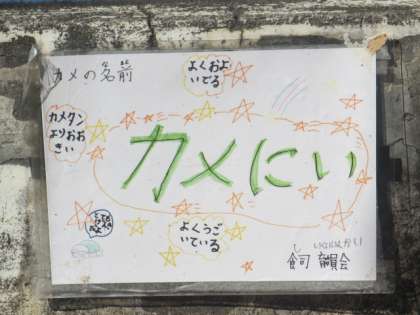 カメの名前
よくおよ
いでる
カメタン
よりおお
きい
カメにい
よくうご
いている
し いいんかい
飼育委員会